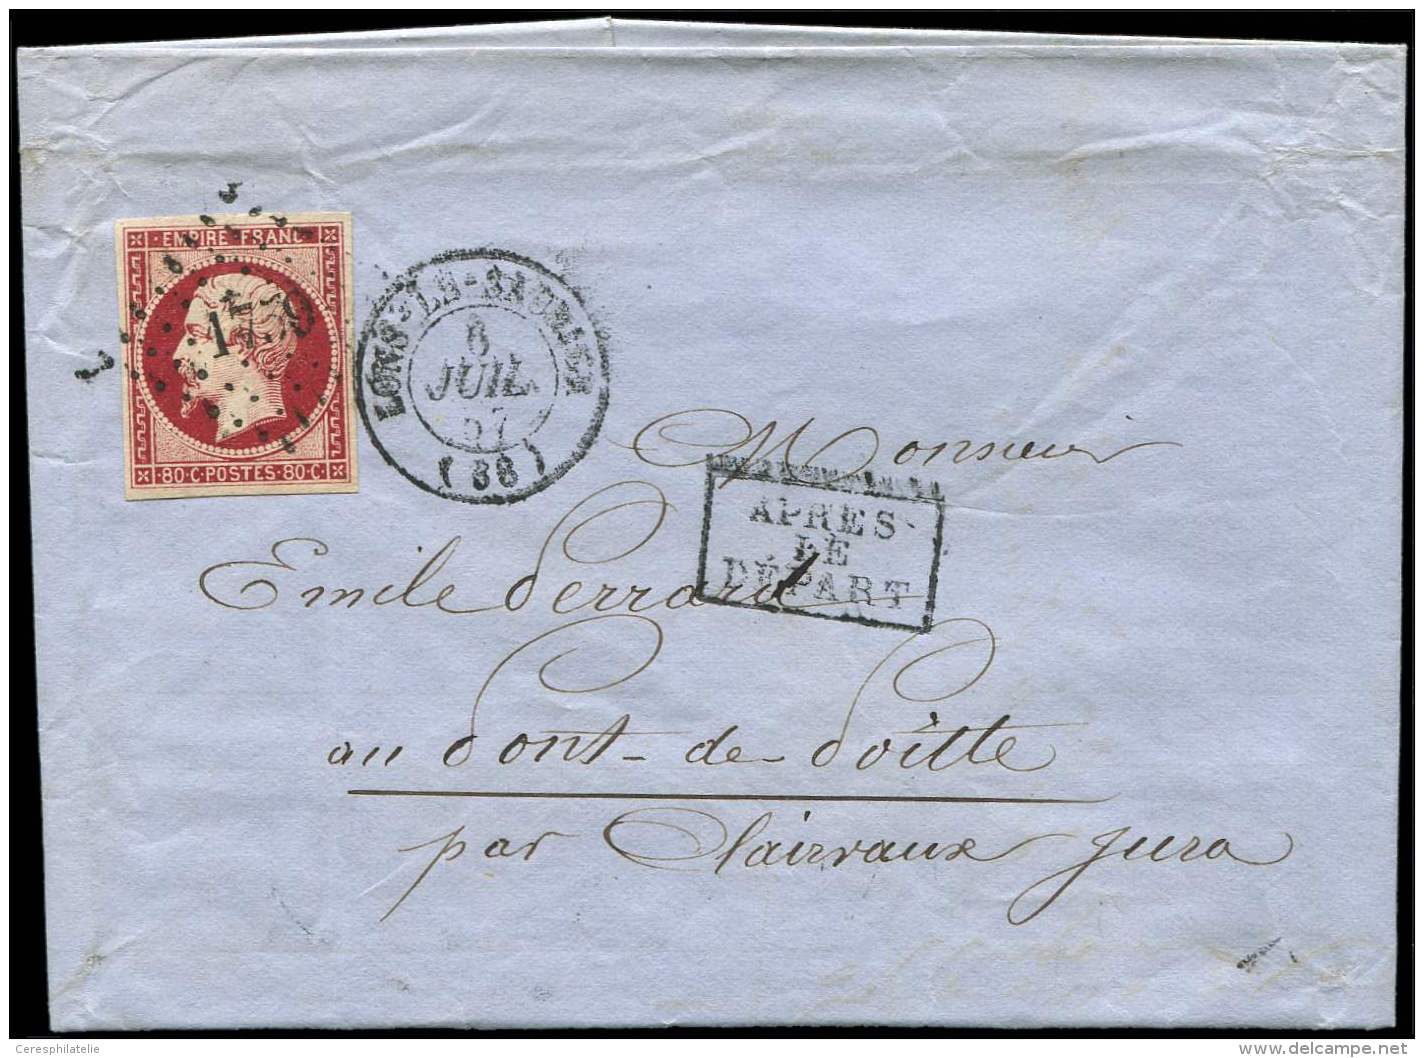 EMPIRE FRANC
80·C·POSTES·80·C·
LONS-LE-SAUNIER
6
JUIL.
57
(38)
Monsieur
APRES
LE
DÉPART
Emile Perrard
au Pont-de-Poitte
par Clairvaux Jura
Ceresphilatelie
www.delcampe.net